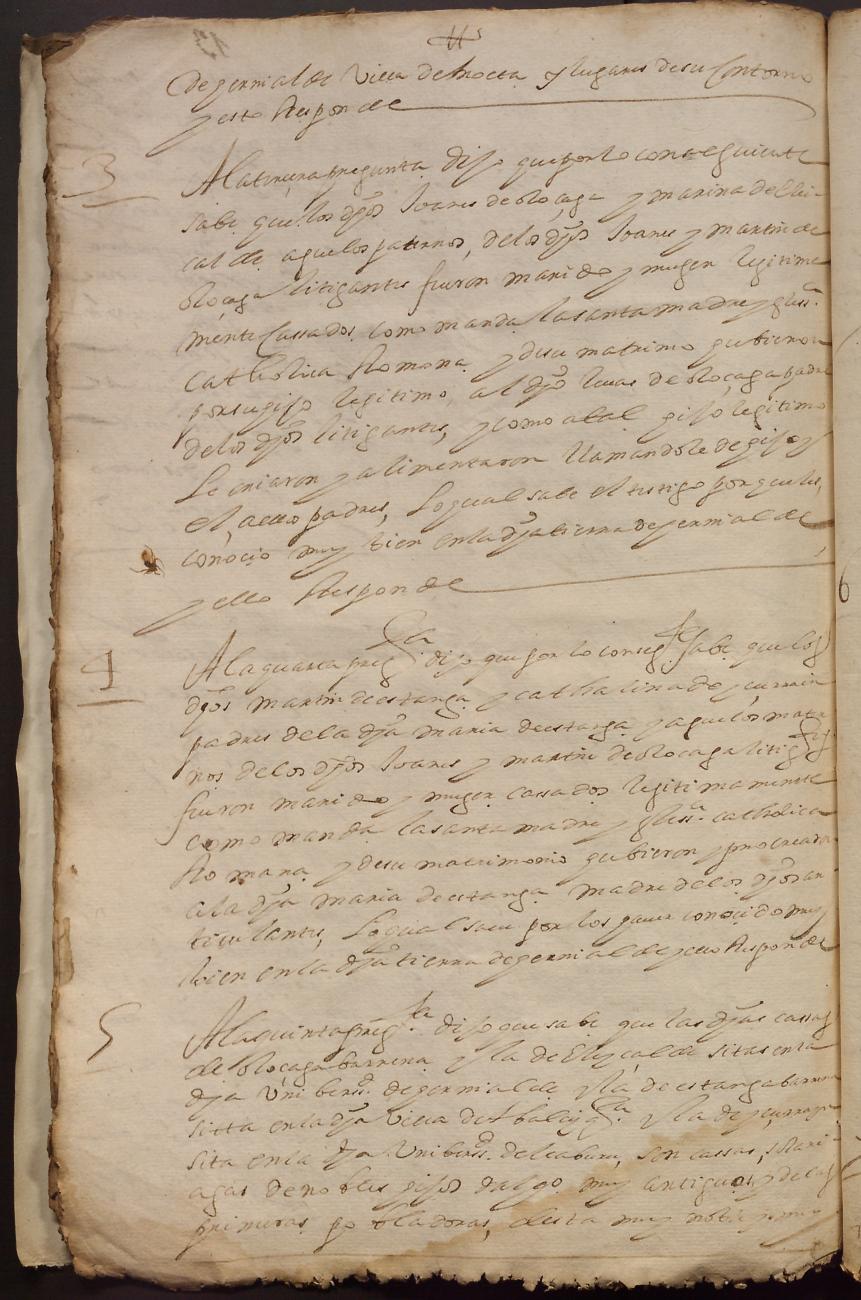 13
de yernialde Villa de Motta y lugares de su Contorno
y esto Responde
3
A la tercera pregunta dijo que por lo conseguiente
sabe que los dhos Joanes de olocaga y marina de Eliz
calde aguelos paternos, de los dhos Joanes y martin de
olocaga litigantes fueron marido y muger legitima
mente Cassados como manda la santa madre yglessia
catholica Romana y de su matrimo gubieron
por su gijo legitimo, al dho lucas de olocaga padre
de los dhos litigantes, y como a tal gijo legitimo
le criaron y alimentaron llamandole de gijo y
el, a ellos padres, lo qual sabe el testigo por que les
conocio muy bien en la dha tierra de yernialde
y ello Responde
4
A la quarta pregta dijo que por lo consegte sabe que los
dhos martin de estanga y cathalina de
padres de la dha maria de estanga y aguelos mater
nos de los dhos Joanes y martin de olocaga litigtes
fueron marido y muger cassados legitimamente
como manda la santa madre yglessa catholica
Romana y de su matrimonio gubieron y procrearon
a la dha maria de estanga madre de los dhos ar
ticulantes, lo qual save por los gaver conocido muy
bien en la dha tierra de yernialde y ello Responde
5
A la quinta pregta dijo que sabe que las dhas cassas
de olocaga barrena y la de Elizcalde sitas en la
dha Unibersd de yernialde y la de estanga barrena
sitta en la dha Villa de y la de
sita en la dha Unibersd de leaburu, son cassas, solari
agas de nobles gijos dalgo muy antiguos y de las
primeras pobladoras, desta muy noble y muy